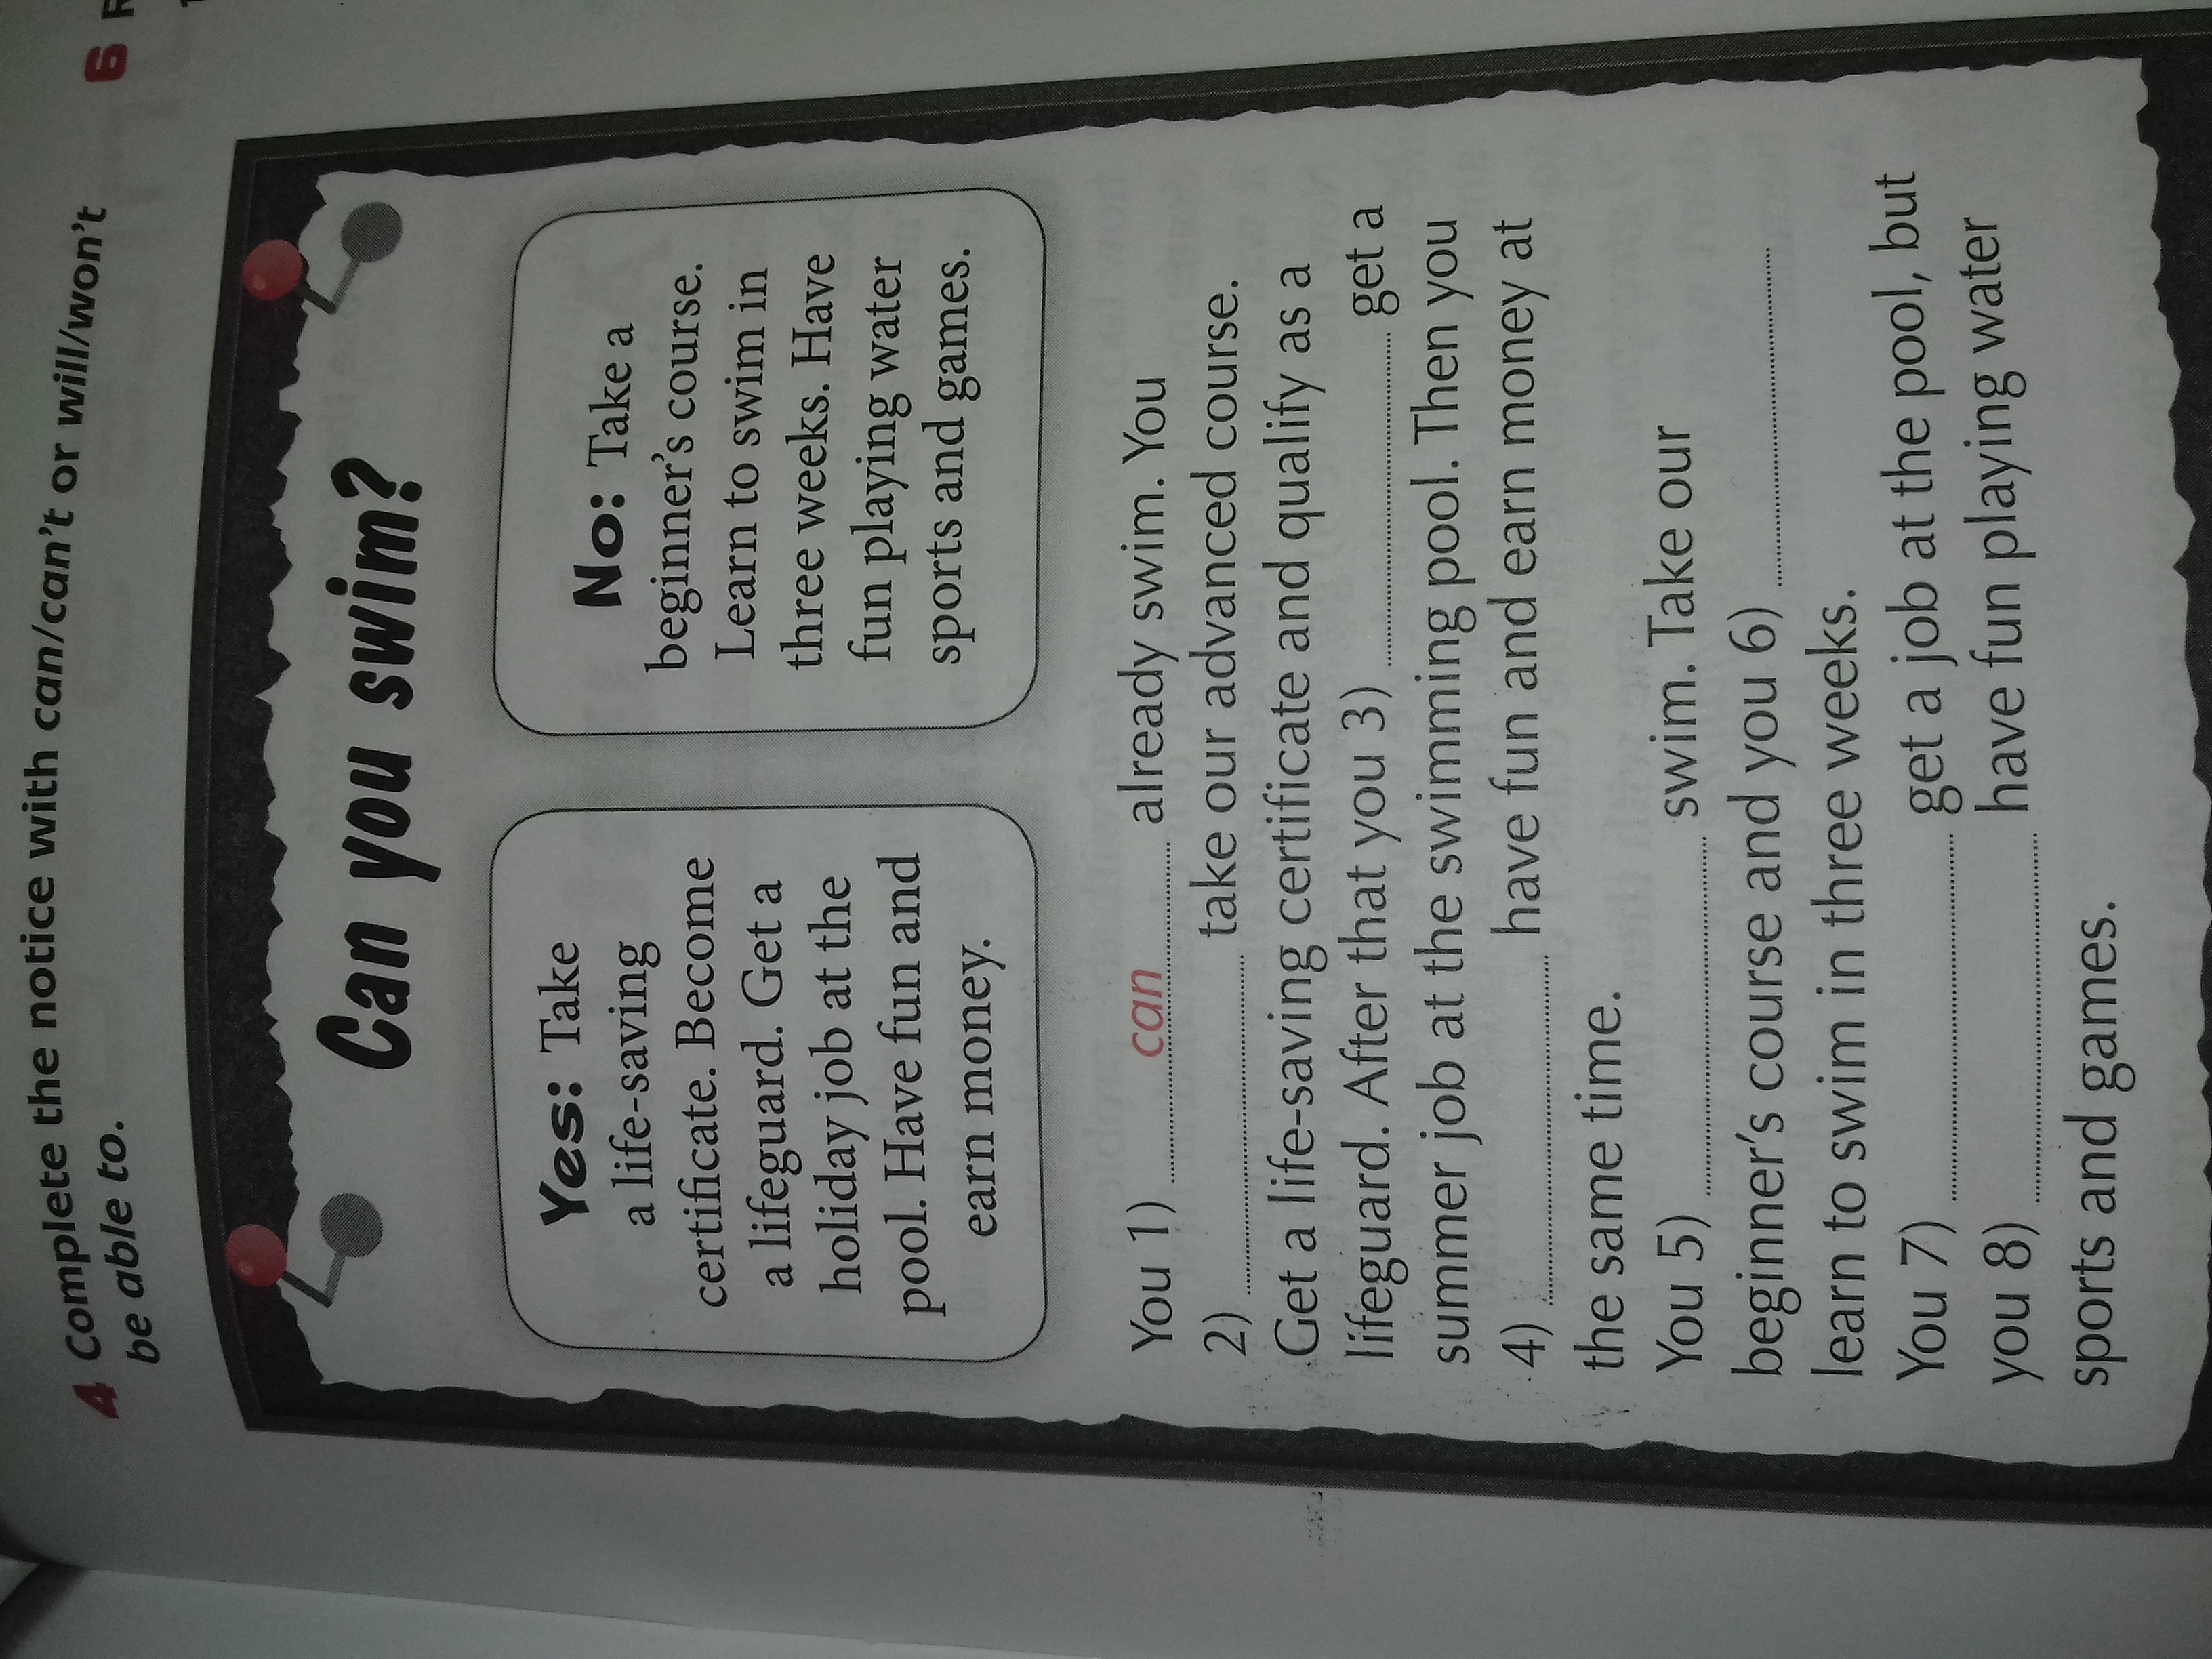 4 Complete the notice with can/can't or will/won't
be able to.
6
Can you swim?
Yes: Take
a life-saving
certificate. Become
a lifeguard. Get a
holiday job at the
pool. Have fun and
earn money.
No: Take a
beginner's course.
Learn to swim in
three weeks. Have
fun playing water
sports and games.
You 1) can already swim. You
2) take our advanced course.
Get a life-saving certificate and qualify as a
lifeguard. After that you 3) get a
summer job at the swimming pool. Then you
4) have fun and earn money at
the same time.
You 5) swim. Take our
beginner's course and you 6)
learn to swim in three weeks.
You 7) get a job at the pool, but
you 8) have fun playing water
sports and games.